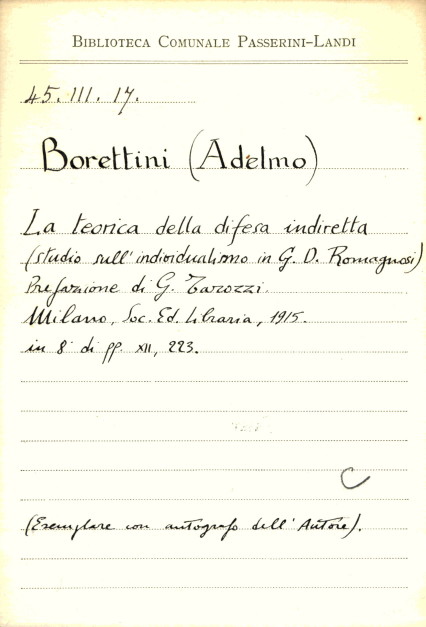 BIBLIOTECA COMUNALE PASSERINI-LANDI
45. III. 17.
Borettini (Adelmo)
La teorica della difesa indiretta
(studio sull'individualismo in G. D. Romagnosi)
Prefazione di G. Tarozzi.
Milano, Soc. Ed. Libraria, 1915.
in 8° di pp. XII, 223.
C
(Esemplare con autografo dell'Autore).